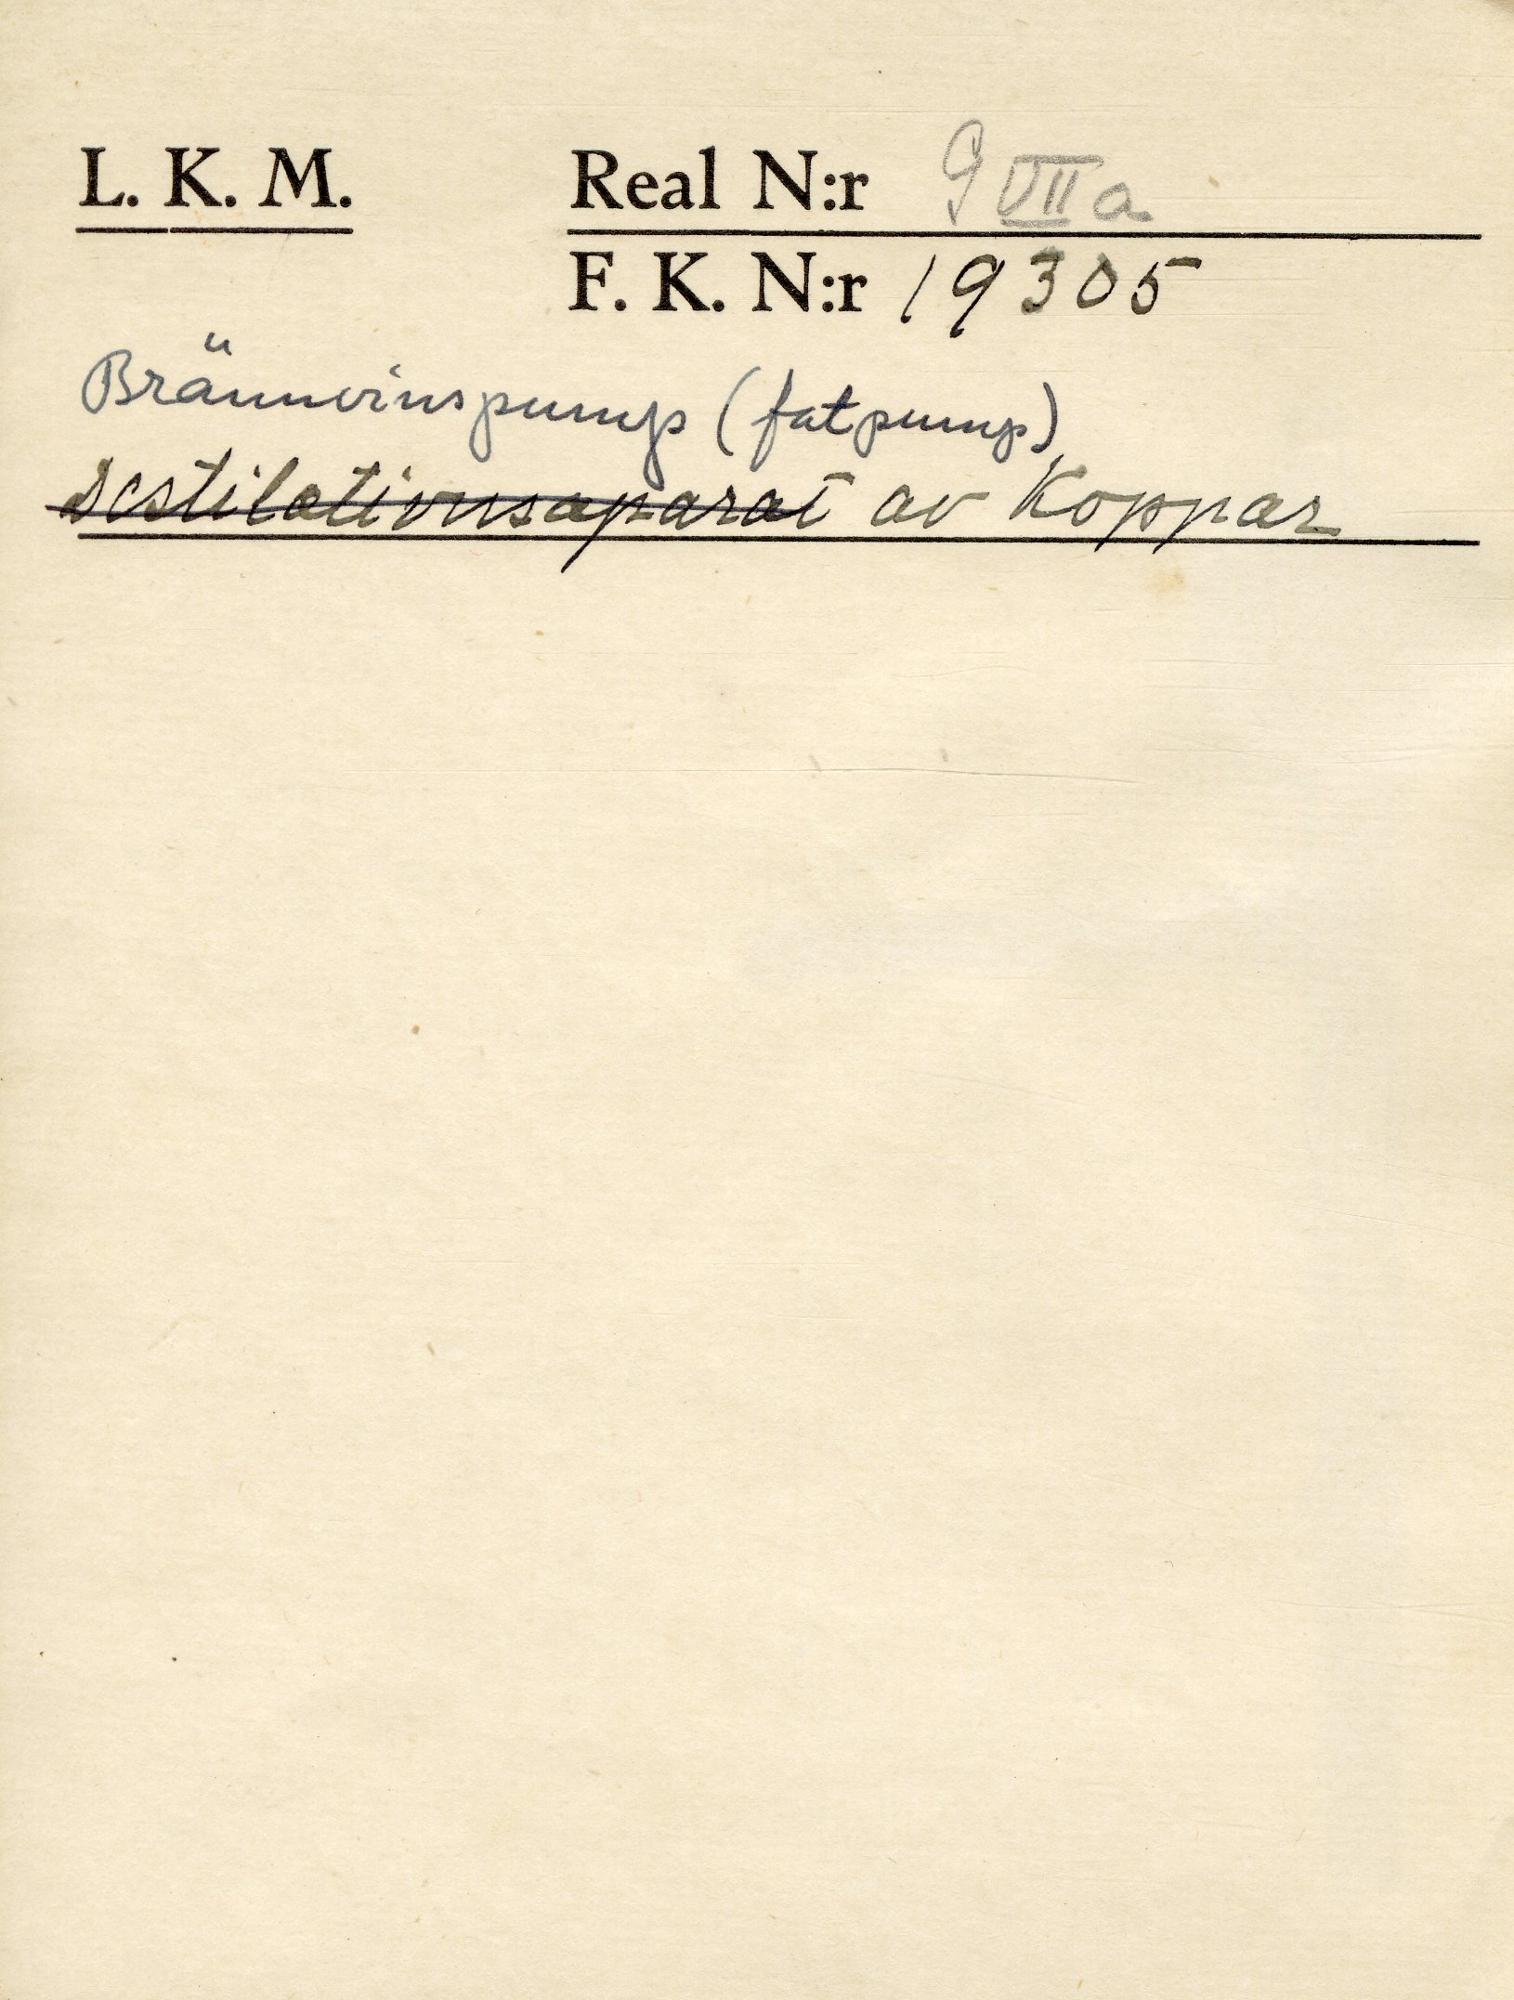 L. K. M. Real N:r 9 VII a
F. K. N:r 19305
Brännvinspump (fatpump)
Destilationsaparat av Koppar